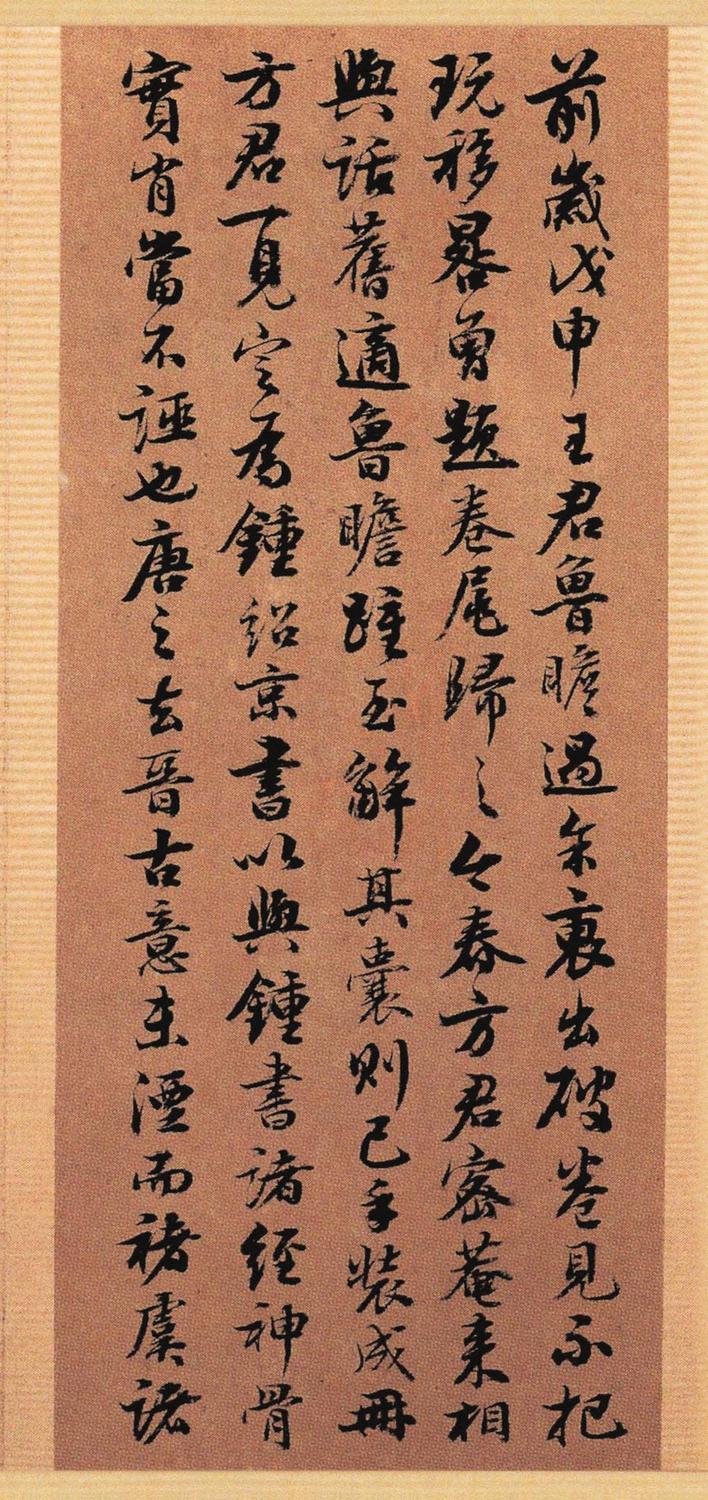 前歲戊申王君魯瞻過余裏出破卷見示把
玩移晷曾題卷尾歸之今春方君密菴來相
與話舊適魯瞻踵至解其囊則已手裝成冊
方君一見定為鍾紹京書以與鍾書諸經神骨
實肖當不誣也唐之去晉古意未湮而褚虞諸